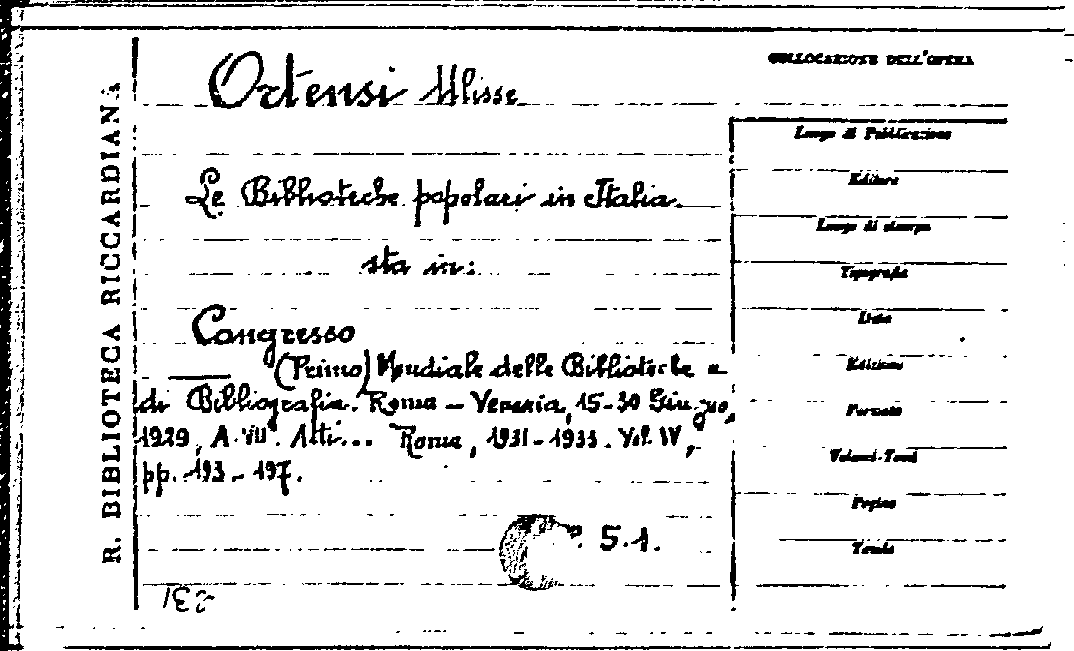 R. BIBLIOTECA RICCARDIANA
Ortensi Ulisse
Le Biblioteche popolari in Italia.
sta in:
Congresso
(Primo) Mondiale delle Biblioteche e
di Bibliografia. Roma - Venezia, 15-30 Giugno,
1929, A. VII°. Atti... Roma, 1931-1933. Vol. IV,
pp. 193-197.
5.1.
COLLOCAZIONE DELL'OPERA
Luogo di Pubblicazione
Editore
Luogo di stampa
Tipografia
Data
Edizione
Formato
Volumi-Tomi
Pagine
Tavole